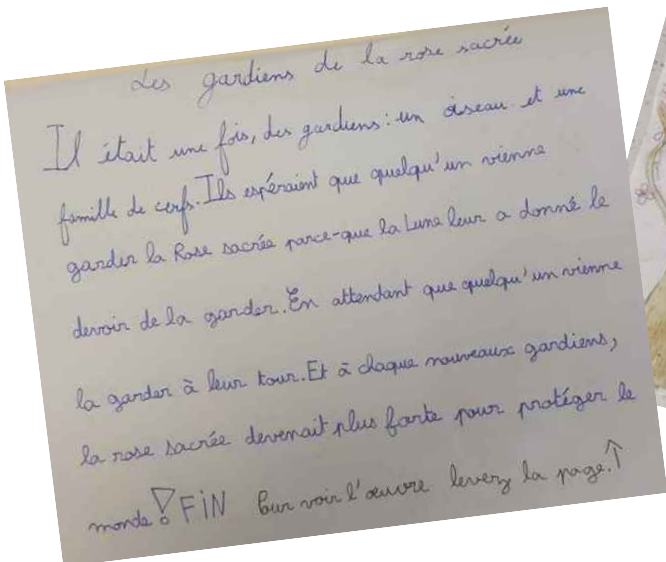 Les gardiens de la rose sacrée
Il était une fois, des gardiens: un oiseau et une
famille de cerfs. Ils espéraient que quelqu'un vienne
garder la Rose sacrée parce-que la Lune leur a donné le
devoir de la garder. En attendant que quelqu'un vienne
la garder à leur tour. Et à chaque nouveaux gardiens,
la rose sacrée devenait plus forte pour protéger le
monde! FIN Pour voir l'œuvre levez la page.↑